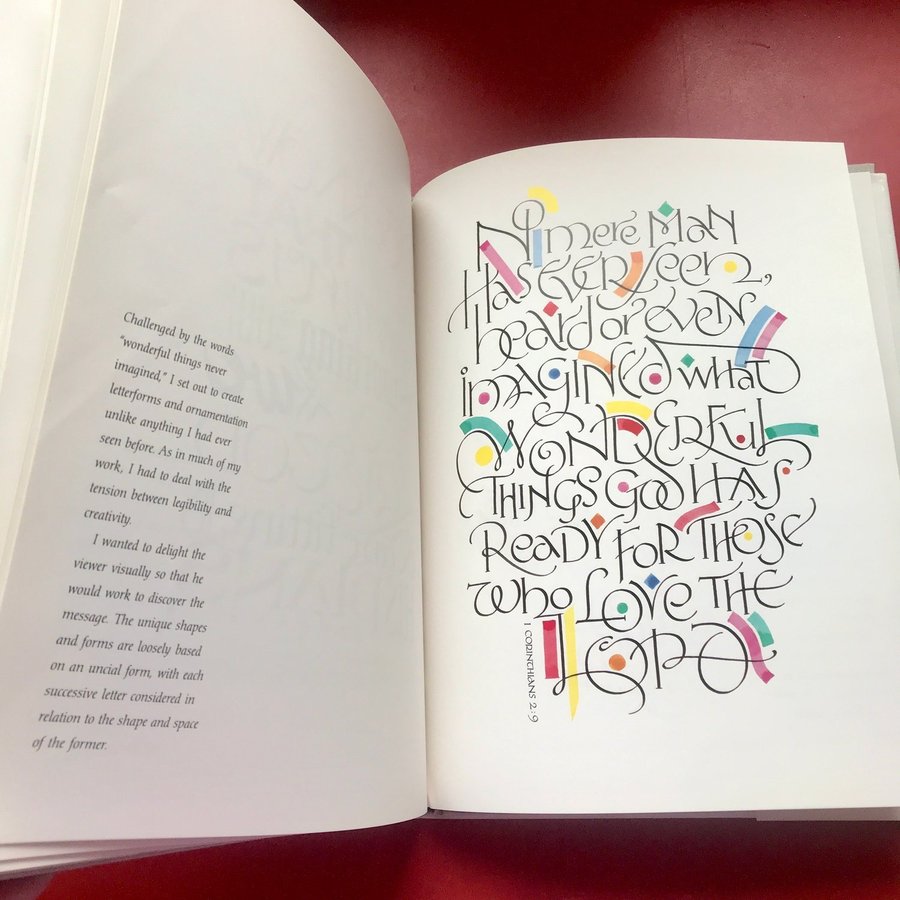 Challenged by the words
"wonderful things never
imagined," I set out to create
letterforms and ornamentation
unlike anything I had ever
seen before. As in much of my
work, I had to deal with the
tension between legibility and
creativity.
I wanted to delight the
viewer visually so that he
would work to discover the
message. The unique shapes
and forms are loosely based
on an uncial form, with each
successive letter considered in
relation to the shape and space
of the former.
No mere Man
Has ever seen,
heard or even
imagined what
Wonderful
Things God Has
Ready for Those
who Love The
Lord
1 Corinthians 2:9